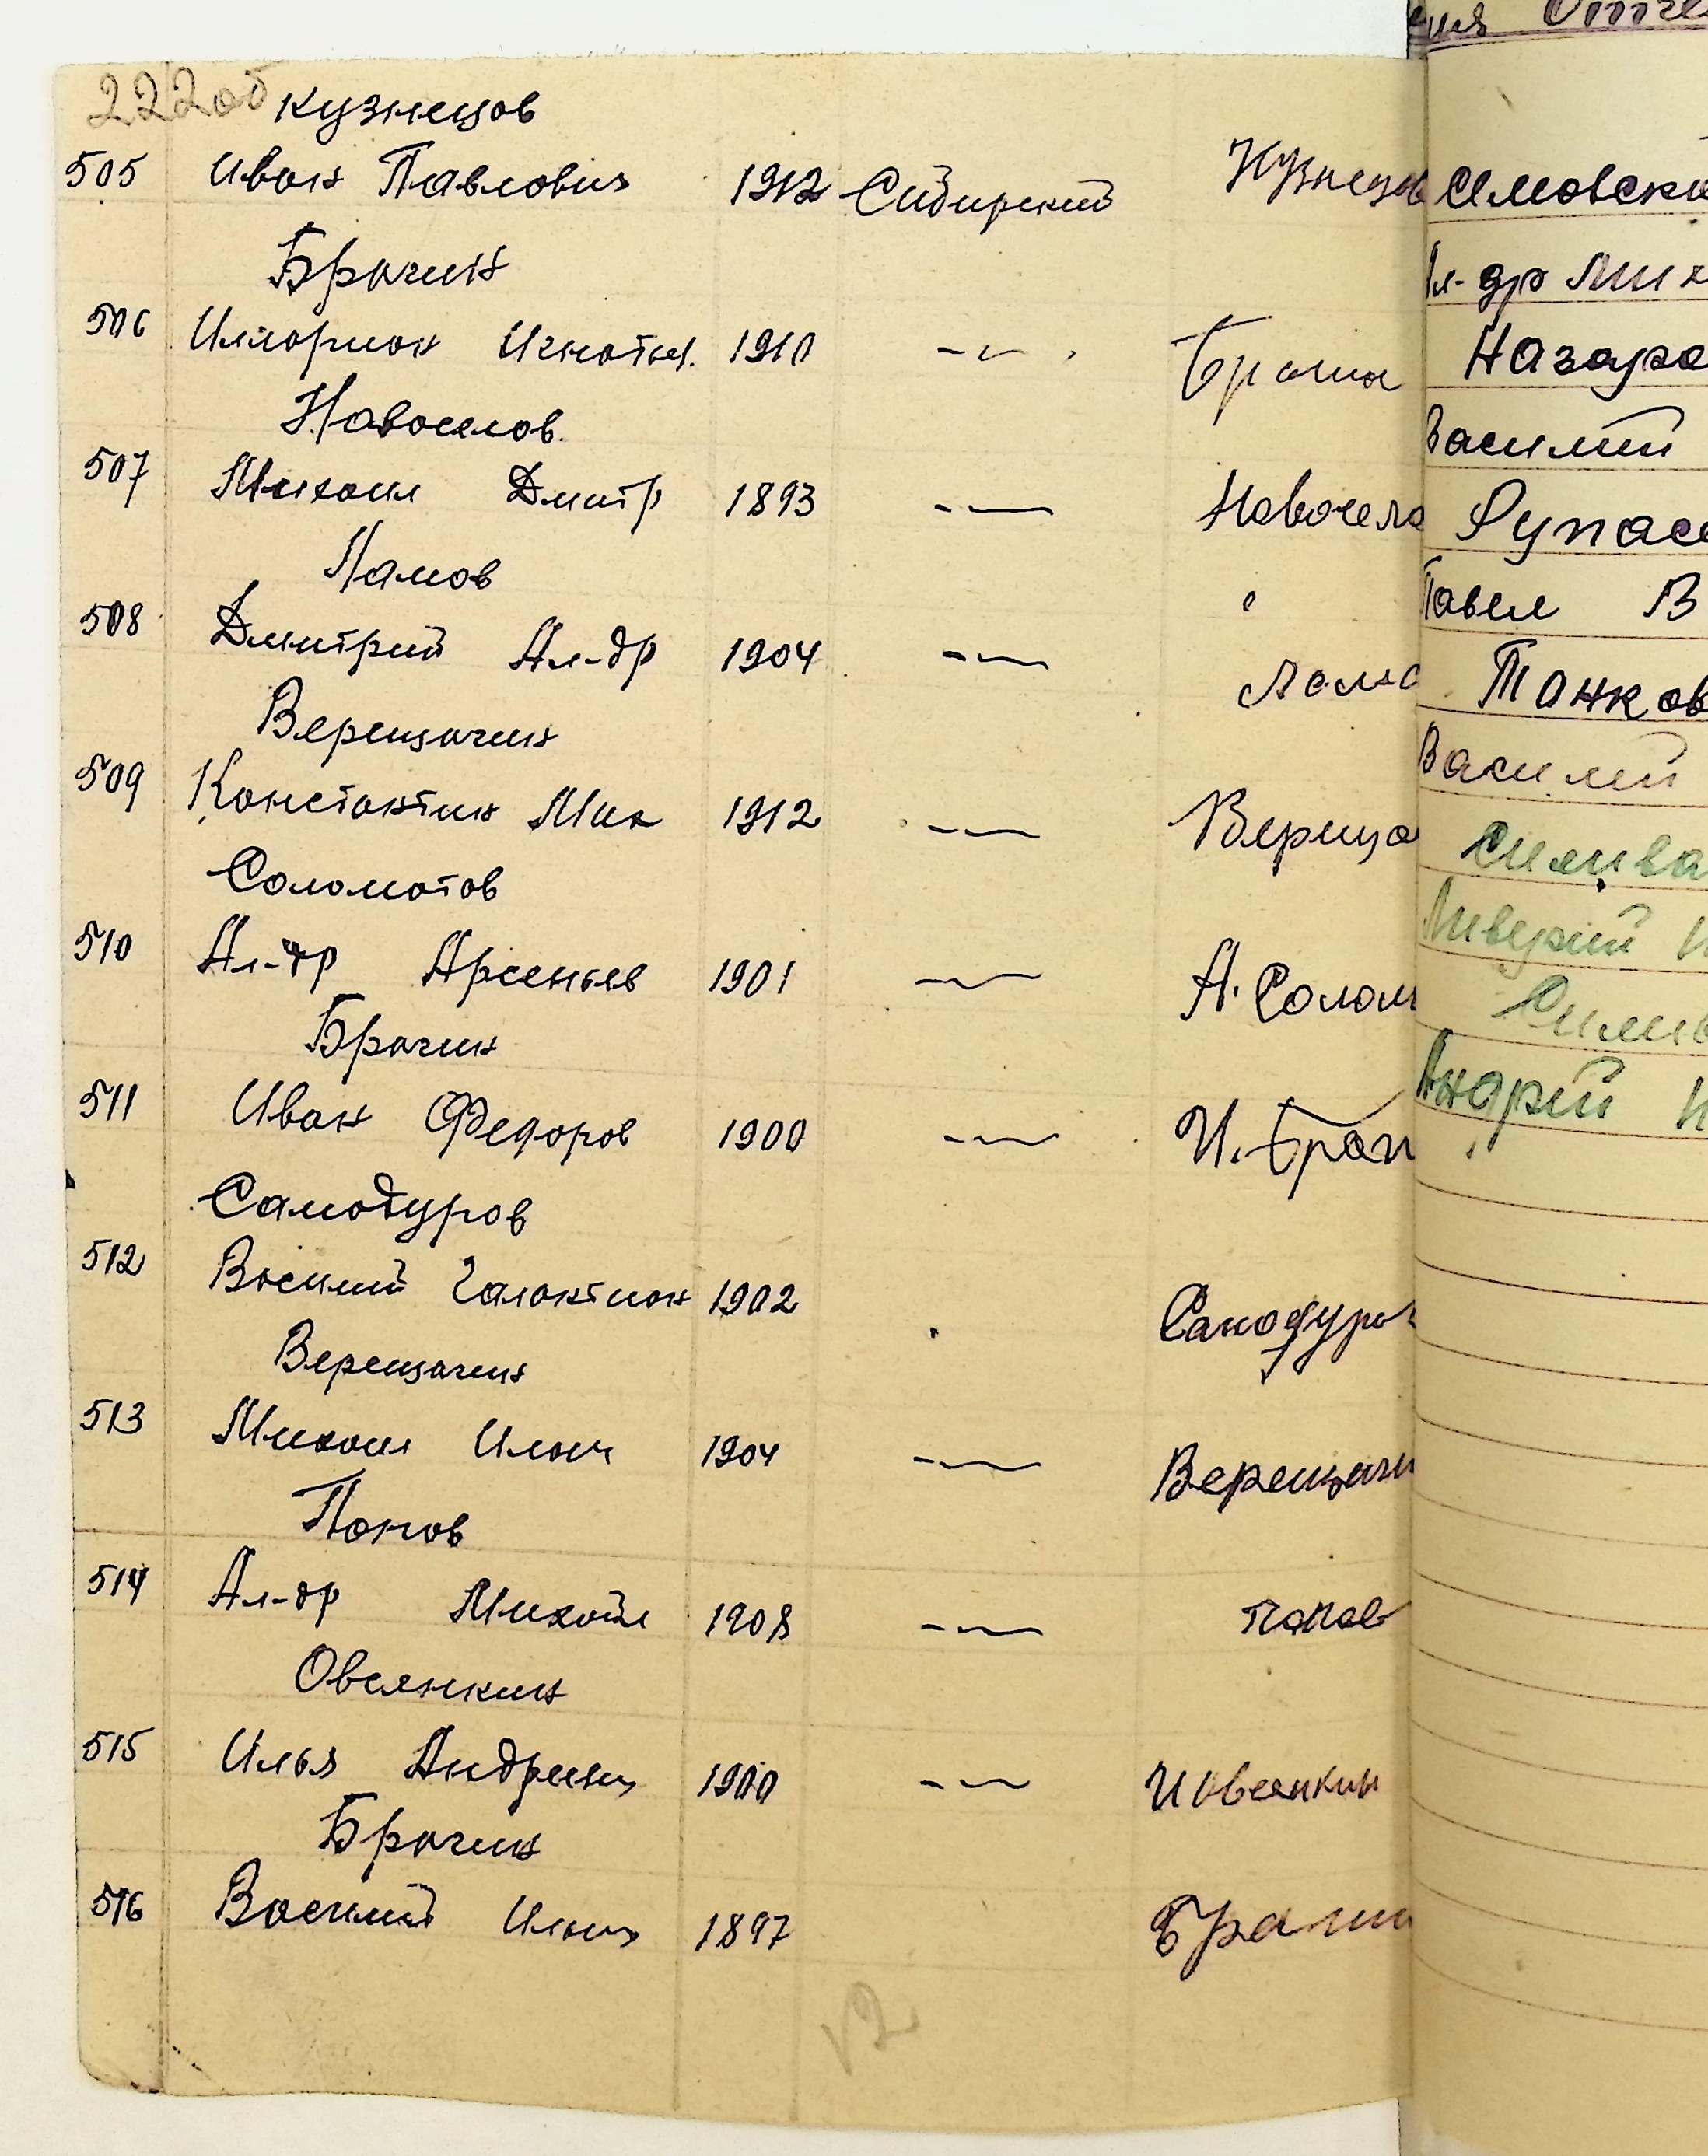 222об Кузнецов
505 Иван Павлович 1912 Сибирский Кузнецов
Брагин
506 Илларион Игнатьев. 1910 -"- Брагин
Новоселов.
507 Михаил Дмитр 1893 -"- Новосело
Ламов
508 Дмитрий Ал-др 1904 -"- Ламо
Верещагин
509 Константин Мих 1912 -"- Вереща
Соломатов
510 Ал-др Арсеньев 1901 -"- А. Солом
Брагин
511 Иван Федоров 1900 -"- И. Браг
Самодуров
512 Василий Галактион 1902 Самодуров
Верещагин
513 Михаил Ильич 1904 -"- Верещаги
Попов
514 Ал-др Михайл 1908 -"- Попов
Овсянкин
515 Илья Андреев 1900 -"- И Овсянкин
Брагин
516 Василий Ильич 1897 Браги
12
ия Отче
Ал-др Мих
Назаро
Василий
Рупас
Павел В
Танков
Василий
Силива
Ливерий И
Силив
Андрей И